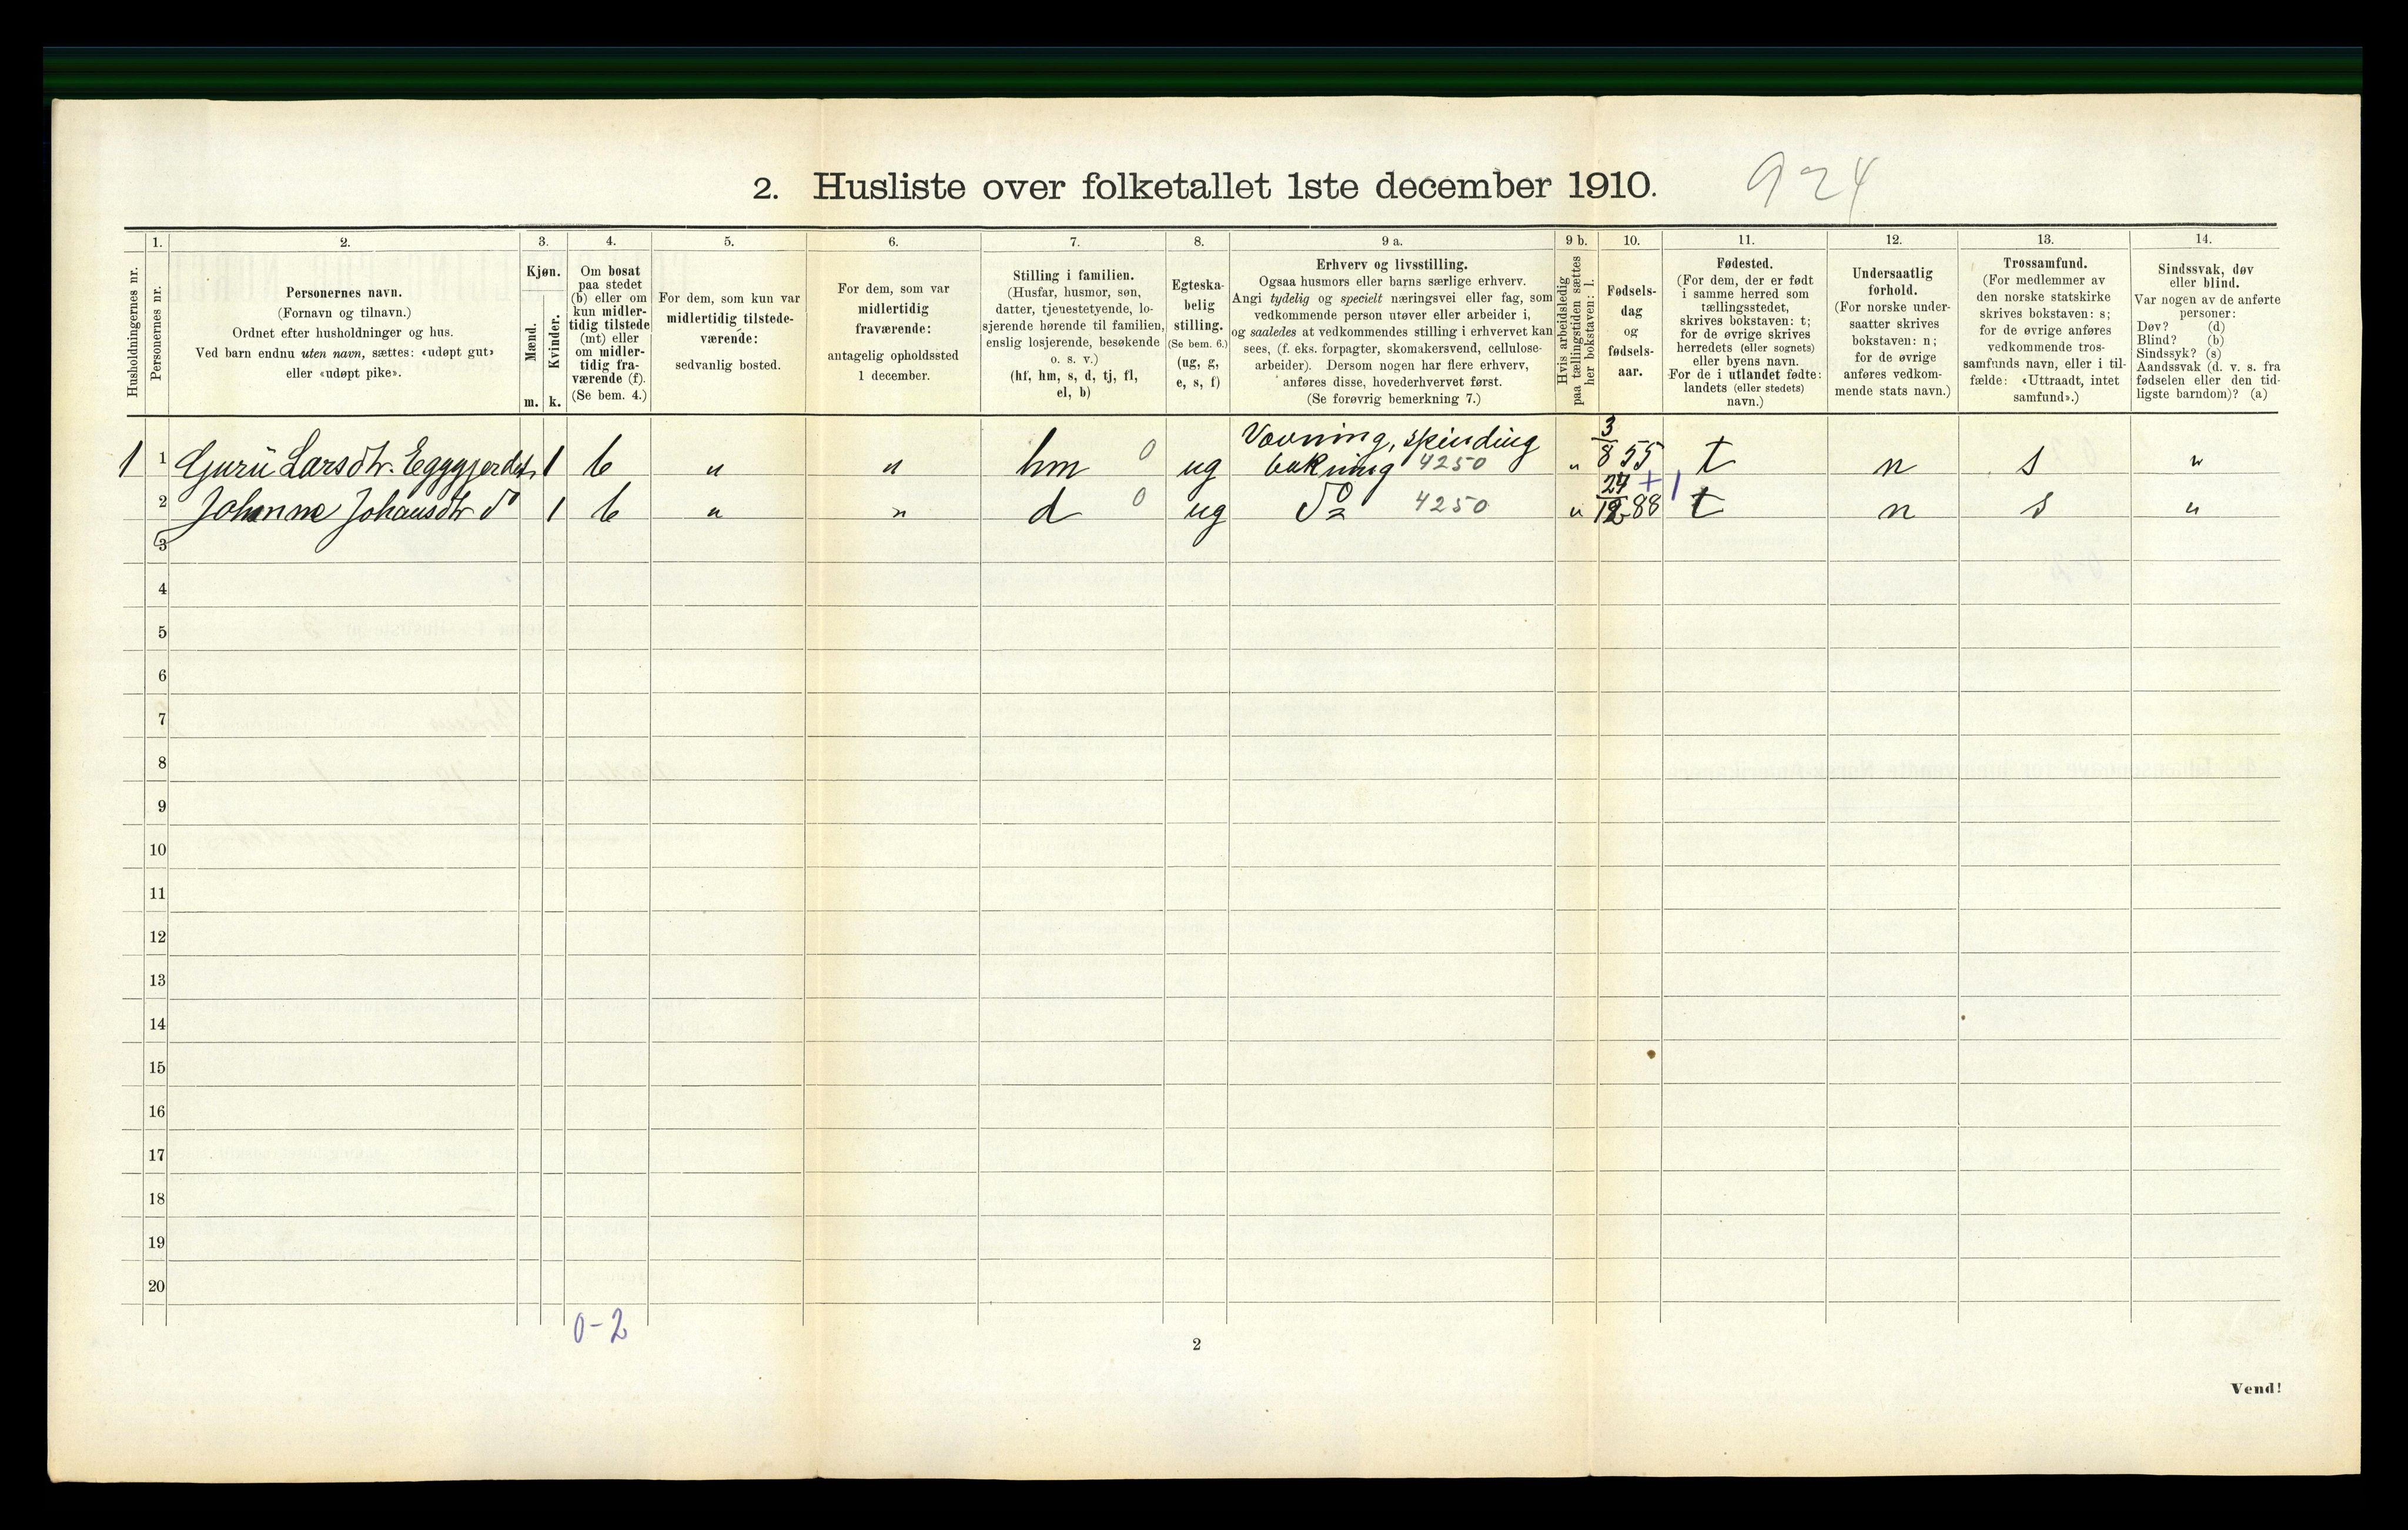 2. Husliste over folketallet 1ste december 1910. 924
1. 2. 3. 4. 5. 6. 7. 8. 9 a. 9 b. 10. 11. 12. 13. 14.
Husholdningernes nr.
Personernes nr.
Personernes navn.
(Fornavn og tilnavn.)
Ordnet efter husholdninger og hus.
Ved barn endnu uten navn, sættes: «udøpt gut»
eller «udøpt pike».
Kjøn.
Mænd.
Kvinder.
m. k.
Om bosat
paa stedet
(b) eller om
kun midler-
tidig tilstede
(mt) eller
om midler-
tidig fra-
værende (f).
(Se bem. 4.)
For dem, som kun var
midlertidig tilstede-
værende:
sedvanlig bosted.
For dem, som var
midlertidig
fraværende:
antagelig opholdssted
1 december.
Stilling i familien.
(Husfar, husmor, søn,
datter, tjenestetyende, lo-
sjerende hørende til familien,
enslig losjerende, besøkende
o. s. v.)
(hf, hm, s, d, tj, fl,
el, b)
Egteska-
belig
stilling.
(Se bem. 6.)
(ug, g,
e, s, f)
Erhverv og livsstilling.
Ogsaa husmors eller barns særlige erhverv.
Angi tydelig og specielt næringsvei eller fag, som
vedkommende person utøver eller arbeider i,
og saaledes at vedkommendes stilling i erhvervet kan
sees, (f. eks. forpagter, skomakersvend, cellulose-
arbeider). Dersom nogen har flere erhverv,
anføres disse, hovederhvervet først.
(Se forøvrig bemerkning 7.)
Hvis arbeidsledig
paa tællingstiden sættes
her bokstaven: l.
Fødsels-
dag
og
fødsels-
aar.
Fødested.
(For dem, der er født
i samme herred som
tællingsstedet,
skrives bokstaven: t;
for de øvrige skrives
herredets (eller sognets)
eller byens navn.
For de i utlandet fødte:
landets (eller stedets)
navn.)
Undersaatlig
forhold.
(For norske under-
saatter skrives
bokstaven: n;
for de øvrige
anføres vedkom-
mende stats navn.)
Trossamfund.
(For medlemmer av
den norske statskirke
skrives bokstaven: s;
for de øvrige anføres
vedkommende tros-
samfunds navn, eller i til-
fælde: «Uttraadt, intet
samfund».)
Sindssvak, døv
eller blind.
Var nogen av de anførte
personer:
Døv? (d)
Blind? (b)
Sindssyk? (s)
Aandssvak (d. v. s. fra
fødselen eller den tid-
ligste barndom)? (a)
Vævning, spinding
1 1 Guru Larsdtr. Egggjerdet 1 b " " hm 0 ug 4250 " 3/8 55 t n s "
2 Johanne Johansdtr do 1 b " " d 0 ug Do 4250 " 88 t n s "
3
4
5
6
7
8
9
10
11
12
13
14
15
16
17
18
19
20
0-2
2
Vend!